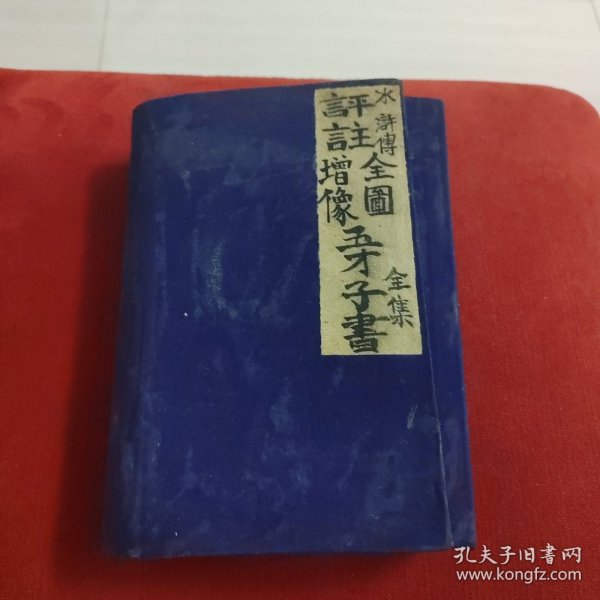 水滸傳
評註
全圖
增像
五才子書
全集
孔夫子旧书网
www.kongfz.com